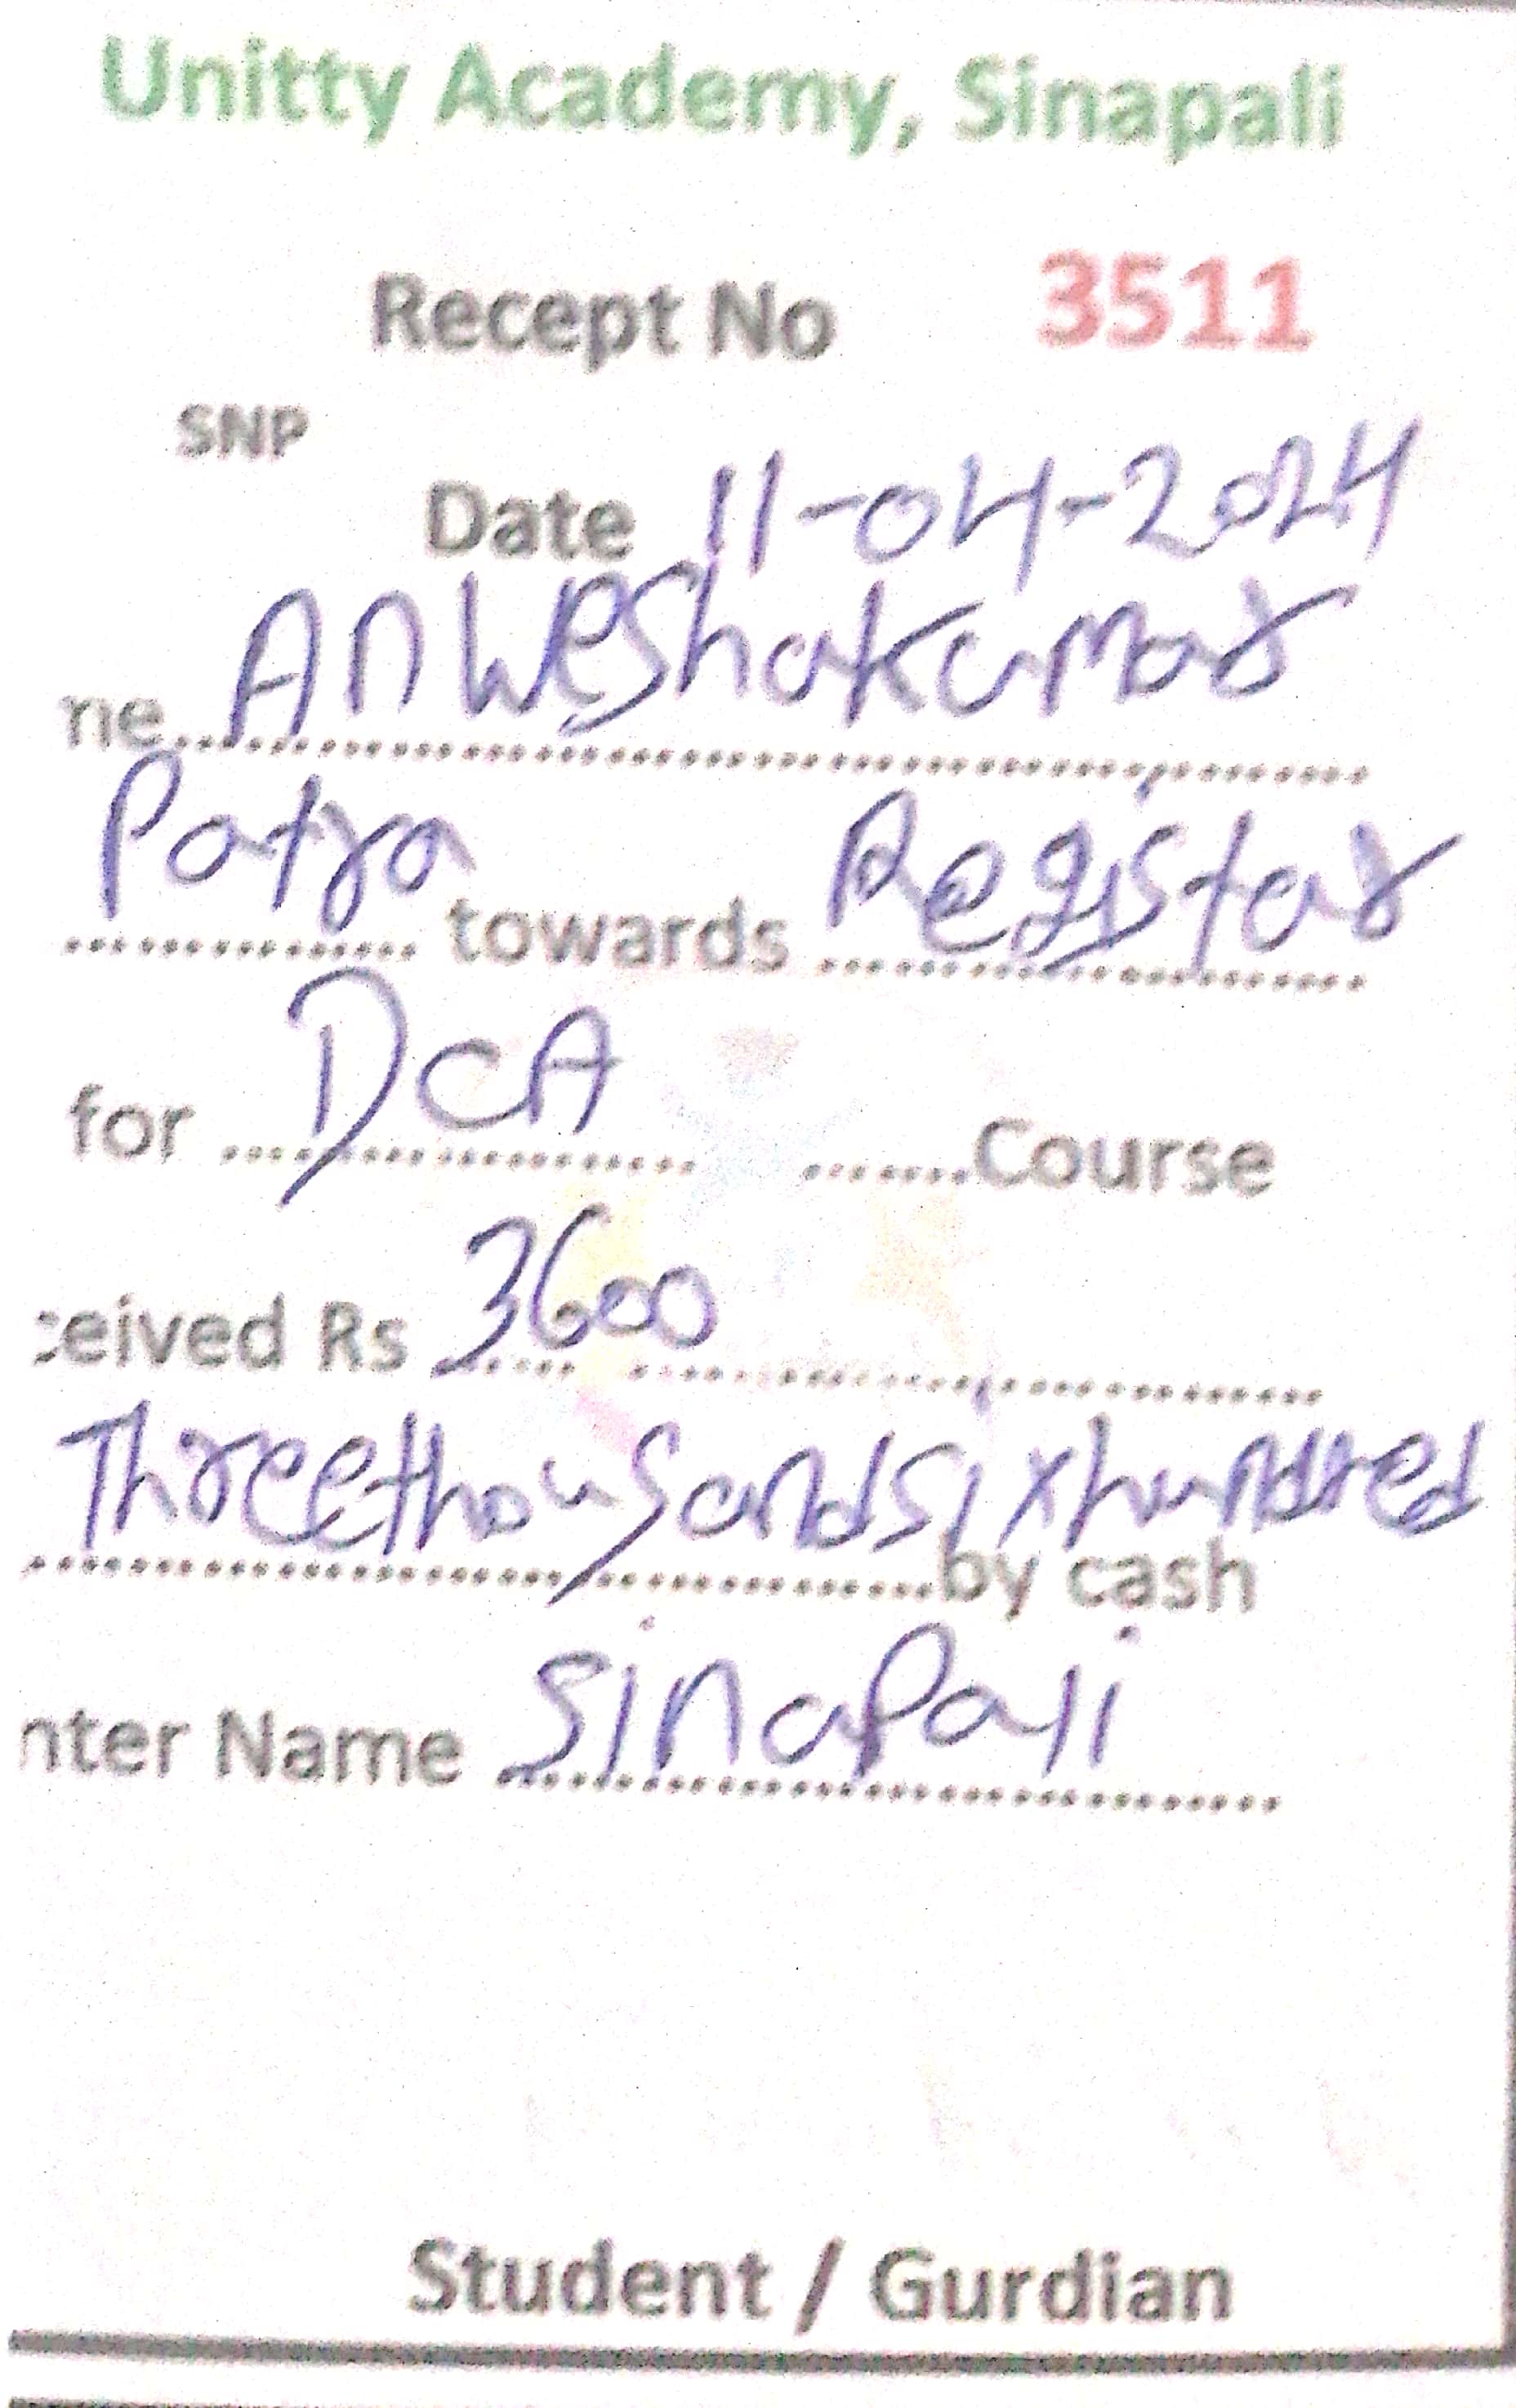 Unitty Academy, Sinapali
Recept No 3511
SNP
Date 11-04-2024
me Anweshakumar
Patra towards Registar
for DCA Course
ceived Rs 3600
Threethousandsixhundred
by cash
nter Name Sinapali
Student / Gurdian